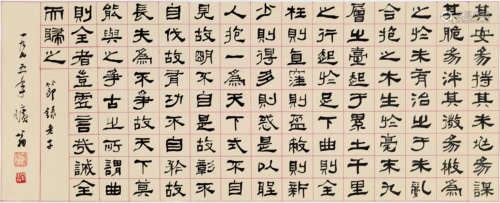 其安易持其未兆易謀
其脆易泮其微易散為
之於未有治之於未亂
合抱之木生於毫末九
層之臺起于累土千里
之行始於足下曲則全
枉則直窪則盈敝則新
少則得多則惑是以聖
人抱一為天下式不自
見故明不自是故彰不
自伐故有功不自矜故
長夫為不爭故天下莫
能與之爭古之所謂曲
則全者豈虛言哉誠全
而歸之
節錄老子
一九九五年